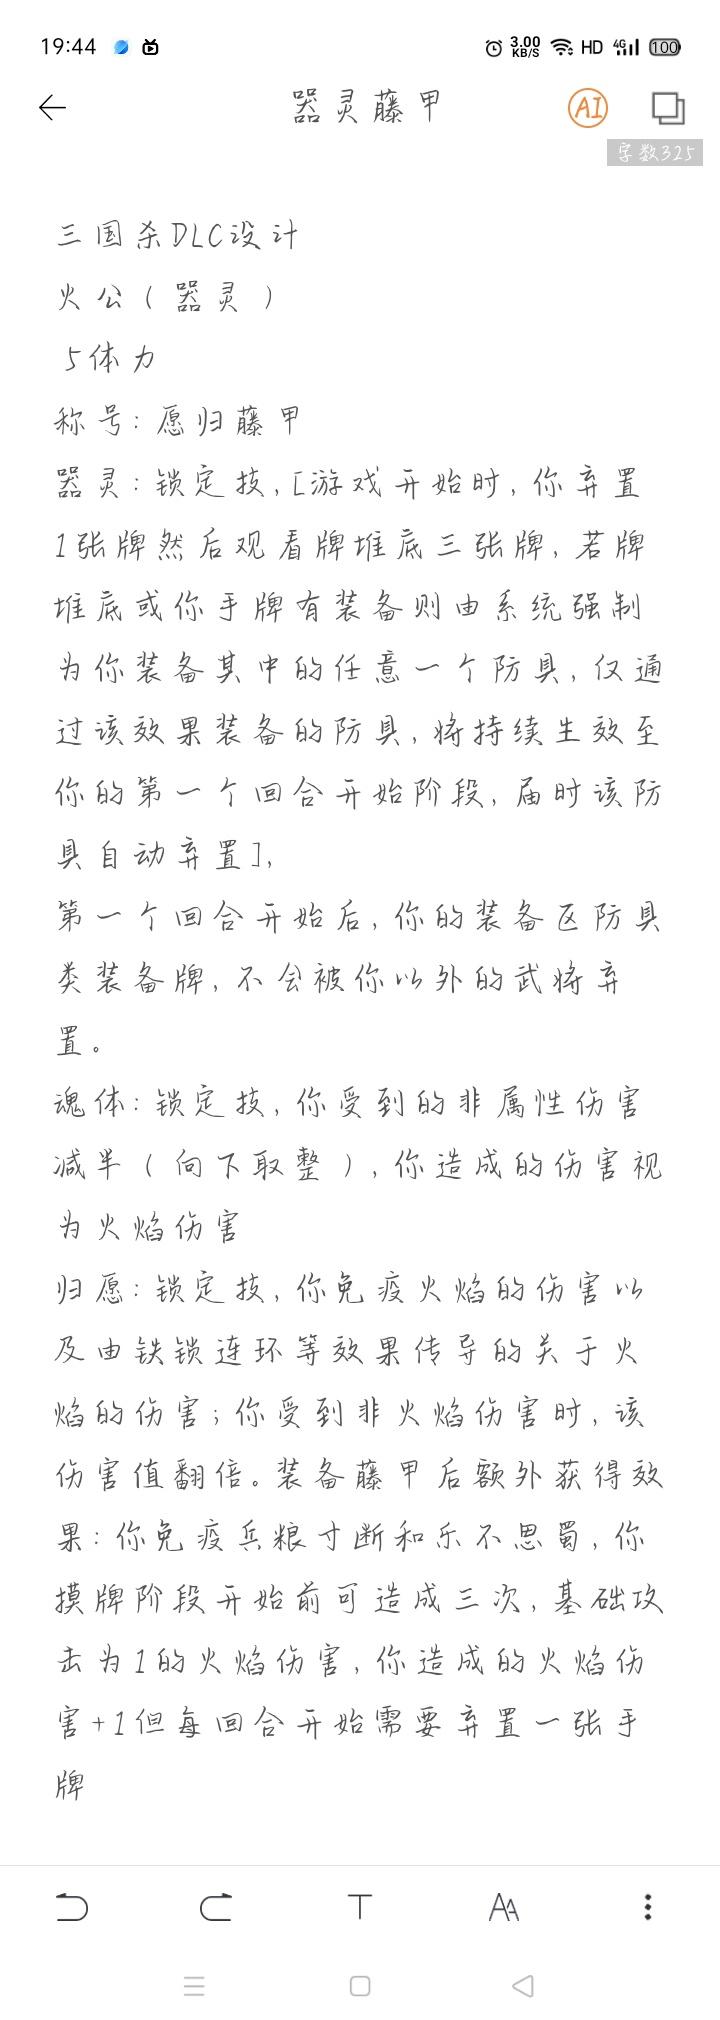 19:44
3.00
KB/S
HD
4G
100
器灵藤甲
AI
字数325
三国杀DLC设计
火公(器灵)
5体力
称号:愿归藤甲
器灵:锁定技,[游戏开始时,你弃置
1张牌然后观看牌堆底三张牌,若牌
堆底或你手牌有装备则由系统强制
为你装备其中的任意一个防具,仅通
过该效果装备的防具,将持续生效至
你的第一个回合开始阶段,届时该防
具自动弃置],
第一个回合开始后,你的装备区防具
类装备牌,不会被你以外的武将弃
置。
魂体:锁定技,你受到的非属性伤害
减半(向下取整),你造成的伤害视
为火焰伤害
归愿:锁定技,你免疫火焰的伤害以
及由铁锁连环等效果传导的关于火
焰的伤害;你受到非火焰伤害时,该
伤害值翻倍。装备藤甲后额外获得效
果:你免疫兵粮寸断和乐不思蜀,你
摸牌阶段开始前可造成三次,基础攻
击为1的火焰伤害,你造成的火焰伤
害+1但每回合开始需要弃置一张手
牌